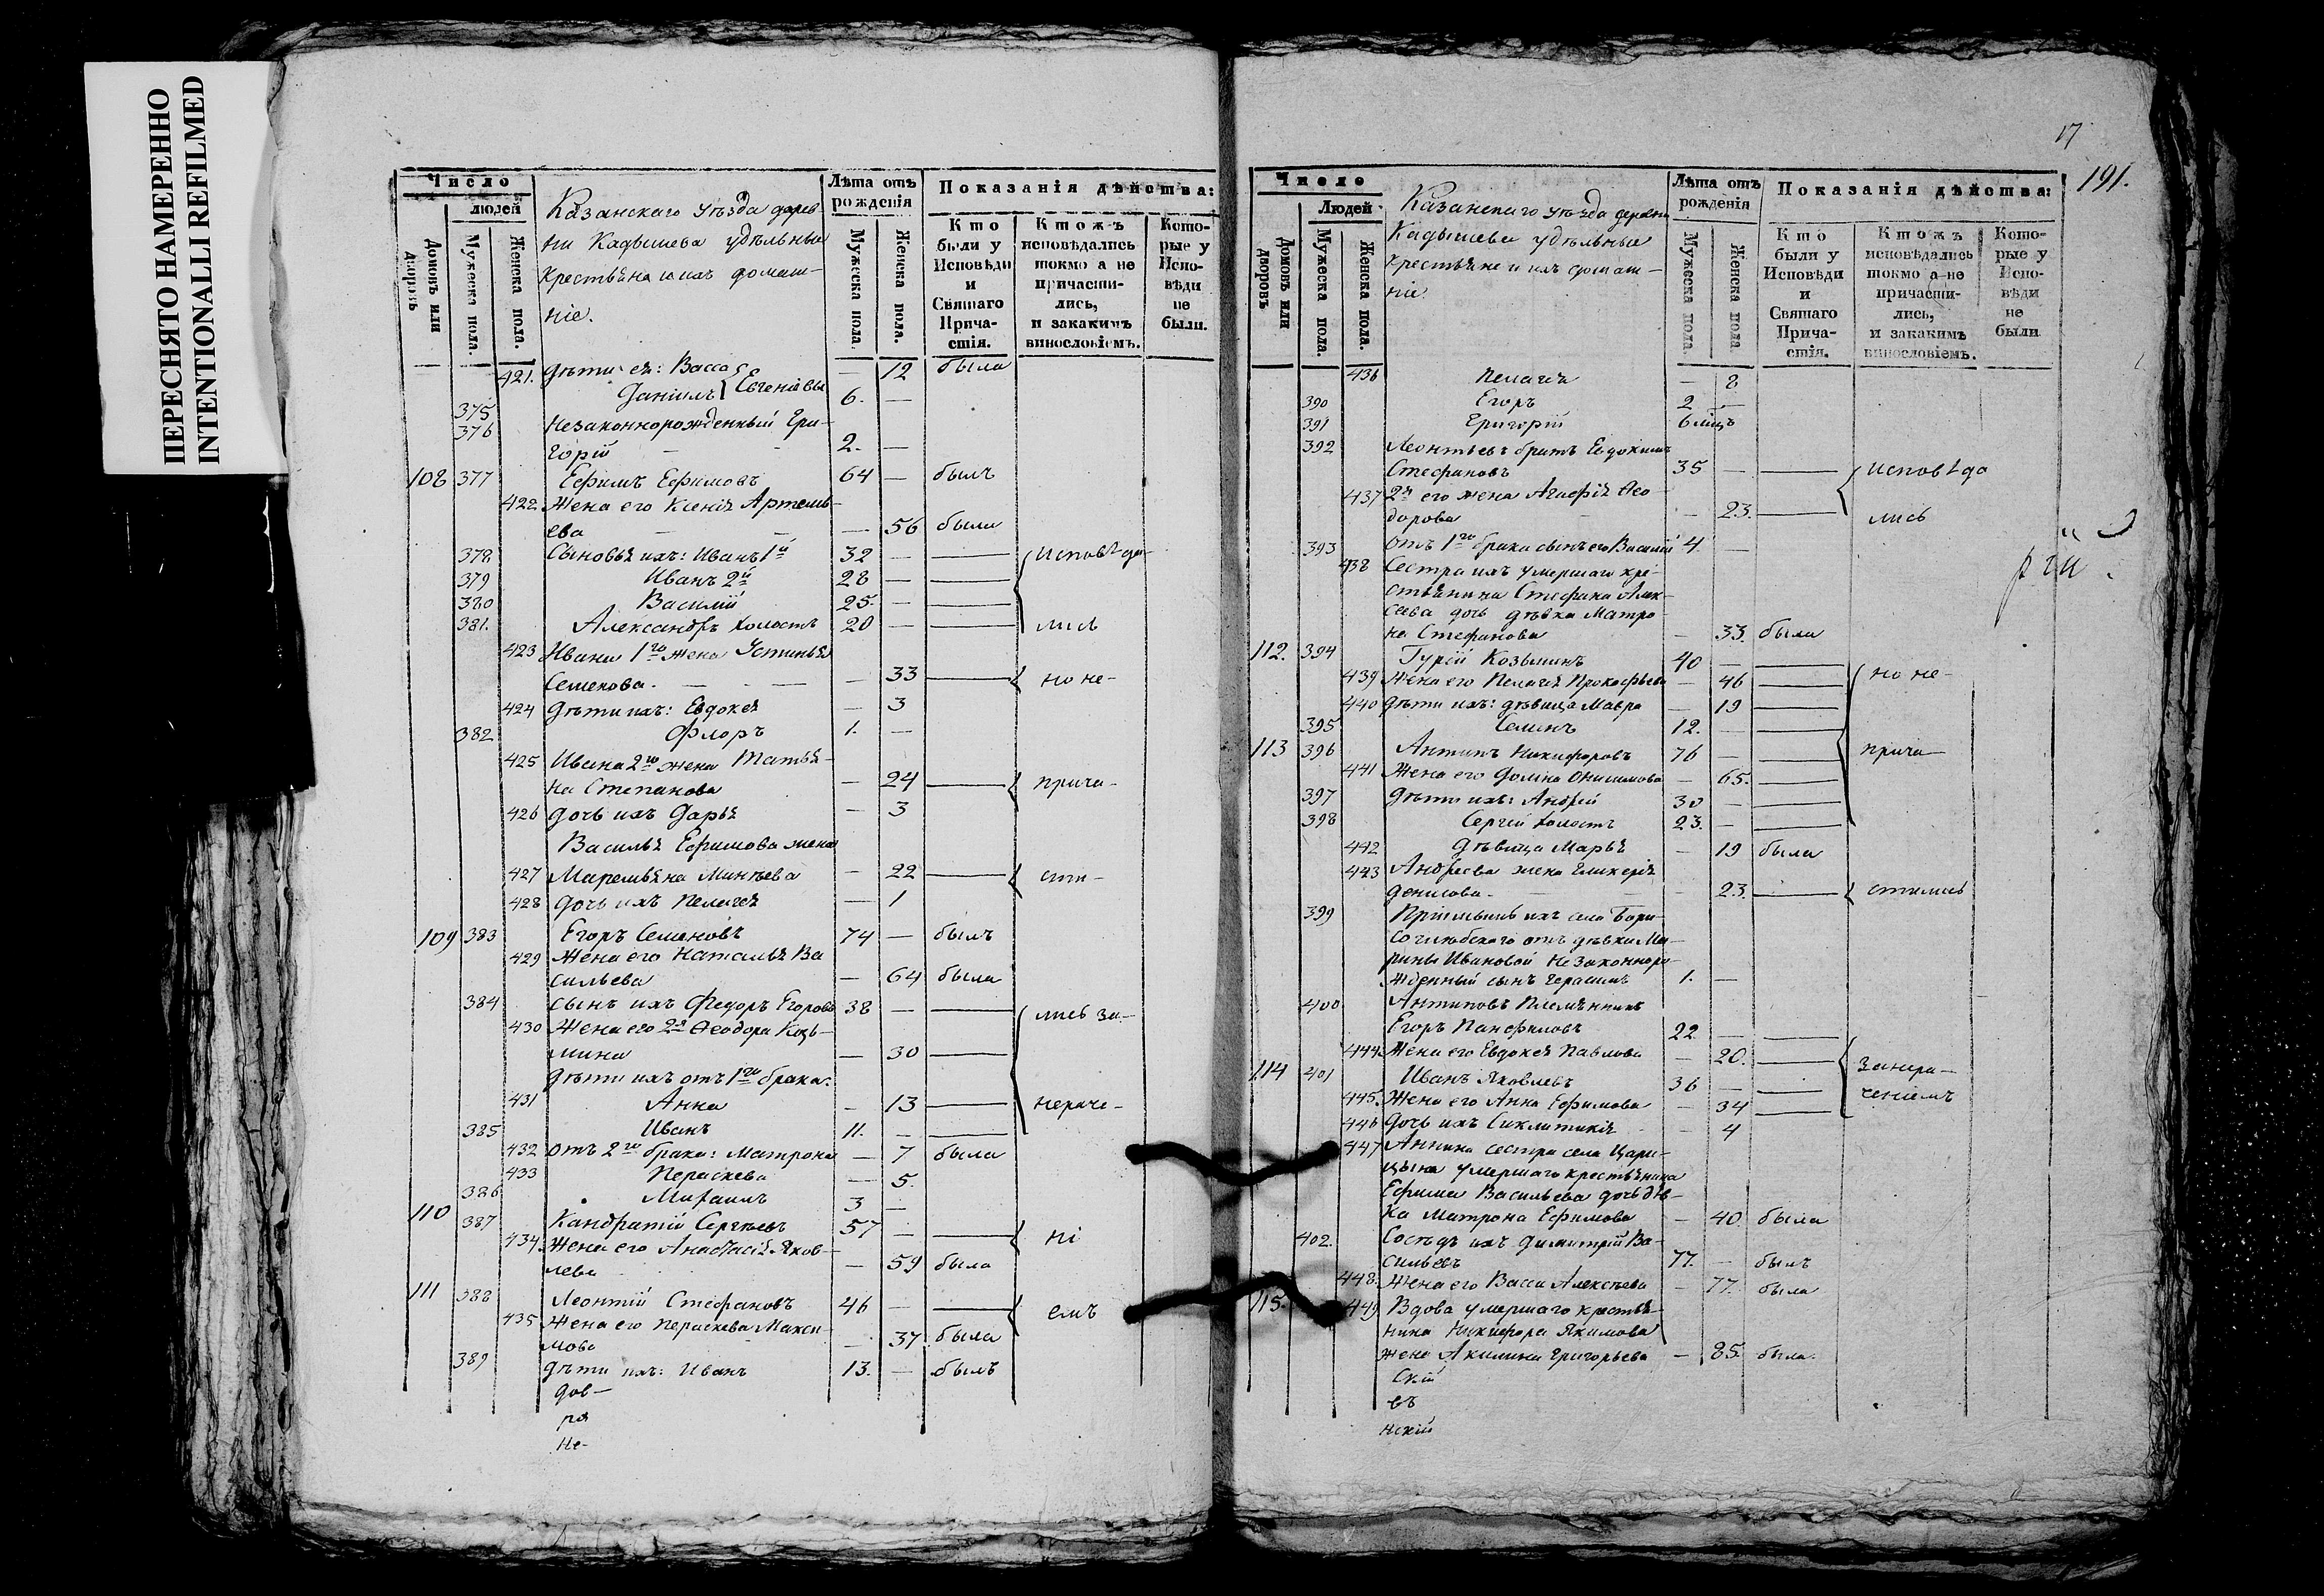 ПЕРЕСНЯТО НАМЕРЕННО
INTENTIONALLI REFILMED
Число
людей
Домовъ или дворовъ
Мужеска пола.
Женска пола.
Казанскаго уѣзда дерев-
ни Кадышева удѣльныя
крестьяна и ихъ домаш-
ніе.
Лѣта отъ рожденія
Мужеска пола.
Женска пола.
Показанія дѣйства:
Кто были у Исповѣди и Святаго Прича-стія.
Ктожъ исповѣдались токмо а не причасти-лись, и закакимъ винословіемъ.
Кото-рые у Испо-вѣди не были.
421. дѣти ея: Васса — 12 была
375 Даніилъ } Евгеніевы 6. —
376 Незаконнорожденный Гри-
горій — 2. —
108 377 Ефимъ Ефимовъ 64 — былъ
422 Жена его Ксенія Артемь-
ева — 56 была
378 Сыновья ихъ: Иванъ 1й 32 — — Исповѣда-
379 Иванъ 2й 28 — —
380 Василій 25. — —
381. Александръ холостъ 20 — — лись
423 Ивана 1го жена Устинья
Семенова. — 33 — но не-
424 дѣти ихъ: Евдокея — 3
382 Флоръ 1. —
425 Ивана 2го жена Татья-
на Степанова — 24 — прича-
426 дочь ихъ Дарья — 3
Василья Ефимова жена
427 Маремьяна Минѣева — 22 — сти-
428 дочь ихъ Пелагея — 1
109 383 Егоръ Семеновъ 74 — былъ
429 Жена его Наталья Ва
сильева — 64 была
384 сынъ ихъ Федоръ Егоровъ 38 — — лись за-
430 Жена его 2я Ѳеодора Козь-
мина — 30 —
дѣти ихъ отъ 1го брака:
431 Анна — 13 — нераче-
385 Иванъ 11. — —
432 отъ 2го брака: Матрона — 7 была
433 Пераскева — 5.
386 Михаилъ 3 —
110 387 Кандратій Сергѣевъ 57 — — ні
434 Жена его Анастасія Яков-
лева — 59 была
111 388 Леонтій Стефановъ 46 — — емъ
435 Жена его Пераскева Макси-
мова — 37 была
389 дѣти ихъ: Иванъ 13. — былъ
дов-
ря
не-
17
191.
Число
Людей
Домовъ или дворовъ
Мужеска пола.
Женска пола.
Казанскаго уѣзда деревни
Кадышева удѣльныя
крестьяне и ихъ домаш-
ніе.
Лѣта отъ рожденія
Мужеска пола.
Женска пола
Показанія дѣйства:
Кто были у Исповѣди и Святаго Прича-стія.
Ктожъ исповѣдались токмо а не причасти-лись, и закакимъ винословіемъ.
Кото-рые у Испо-вѣди не были
436 Пелагея — 8
390 Егоръ 2 —
391 Григорій 6 мцъ
392 Леонтьевъ братъ Евдокимъ
Стефановъ 35 — — Исповѣда
437 2я его жена Агафія Ѳео-
дорова — 23. — лись
393 отъ 1го брака сынъ его Василій 4. —
438 Сестра ихъ умершаго кре-
стьянина Стефана Алек-
сеева дочь дѣвка Матро-
на Стефанова — 33. была
112. 394 Гурій Козьминъ 40 — —
439 Жена его Пелагея Прокофьева — 46 — но не-
440 дѣти ихъ: дѣвица Мавра — 19 —
395 Семенъ 12. — —
113 396 Антипъ Никифоровъ 76 — — прича-
441 Жена его Домна Онисимова — 65. —
397 дѣти ихъ: Андрей 30 — —
398 Сергей холостъ 23. — —
442 дѣвица Марья — 19 была
443 Андреева жена Гликерія
Денисова. — 23. — стились
399 Пріемышъ ихъ села Бори-
соглебскаго отъ дѣвки Ма-
рины Ивановой Незаконноро-
жденный сынъ Герасимъ 1. —
400 Антиповъ Племянникъ
Егоръ Панфиловъ 22. — —
444. Жена его Евдокея Павлова — 20. —
114 401 Иванъ Яковлевъ 36 — —
445. Жена его Анна Ефимова — 34 — ченіемъ
446 Дочь ихъ Сиклитикія — 4
447 Аннина сестра села Цари-
цына умершаго крестьянина
Ефима Васильева дочь дѣв-
ка Матрона Ефимова — 40. была
402. Сосѣдъ ихъ Димитрій Ва-
сильевъ 77. — былъ
448. Жена его Васса Алексѣева — 77. была
115. 449 Вдова умершаго крестья-
нина Никифора Якимова
жена Акилина Григорьева — 85. была.
скій
въ
нскій